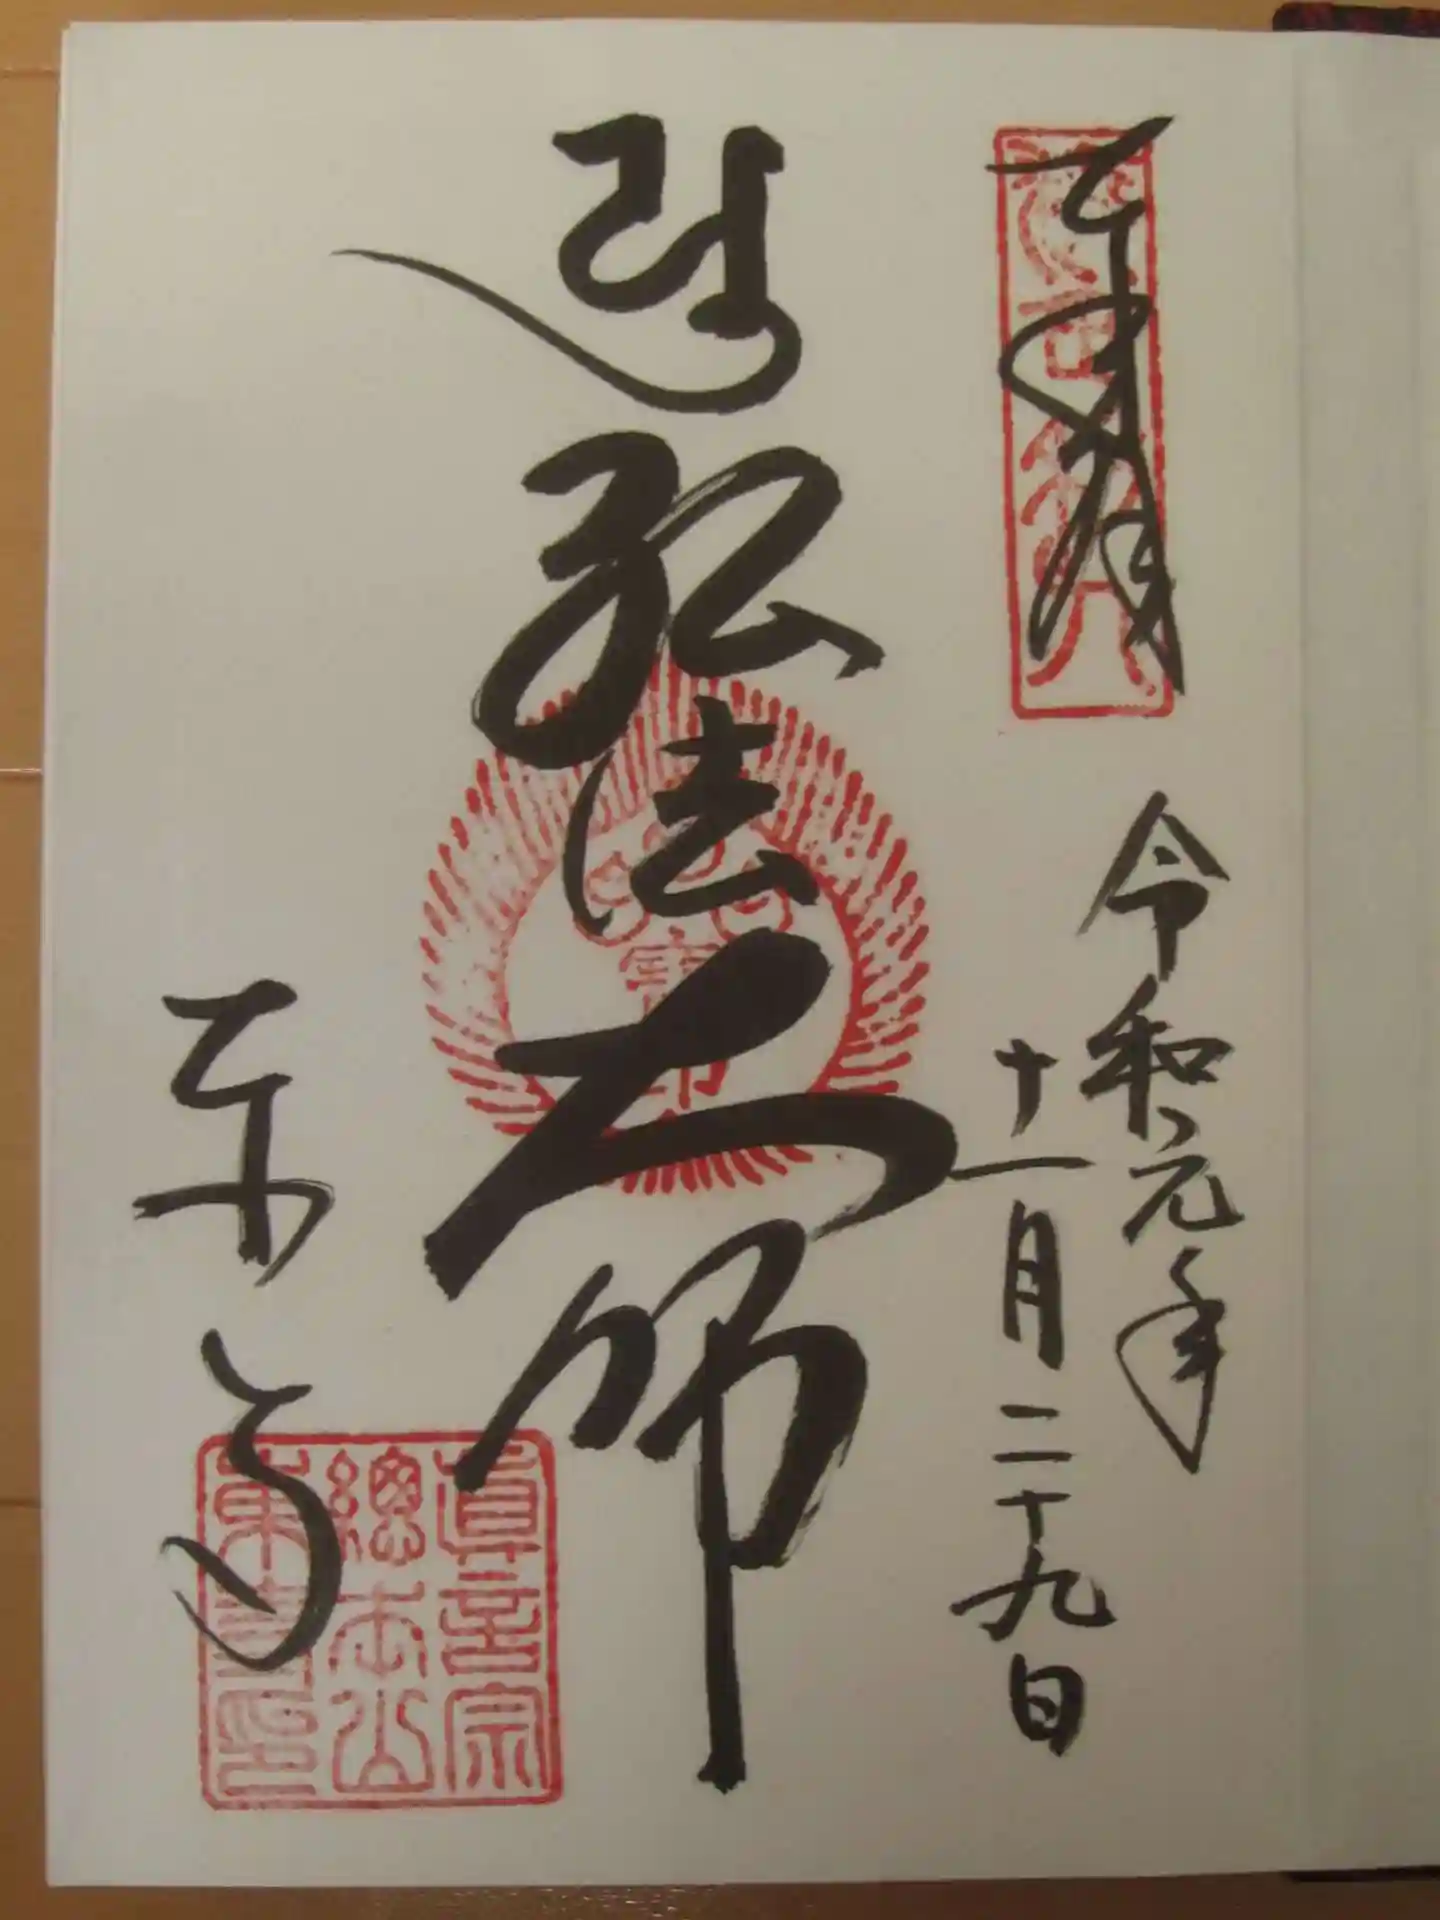 奉拝
令和元年
十一月二十九日
弘法大師
東寺
真言宗
総本山
東寺印